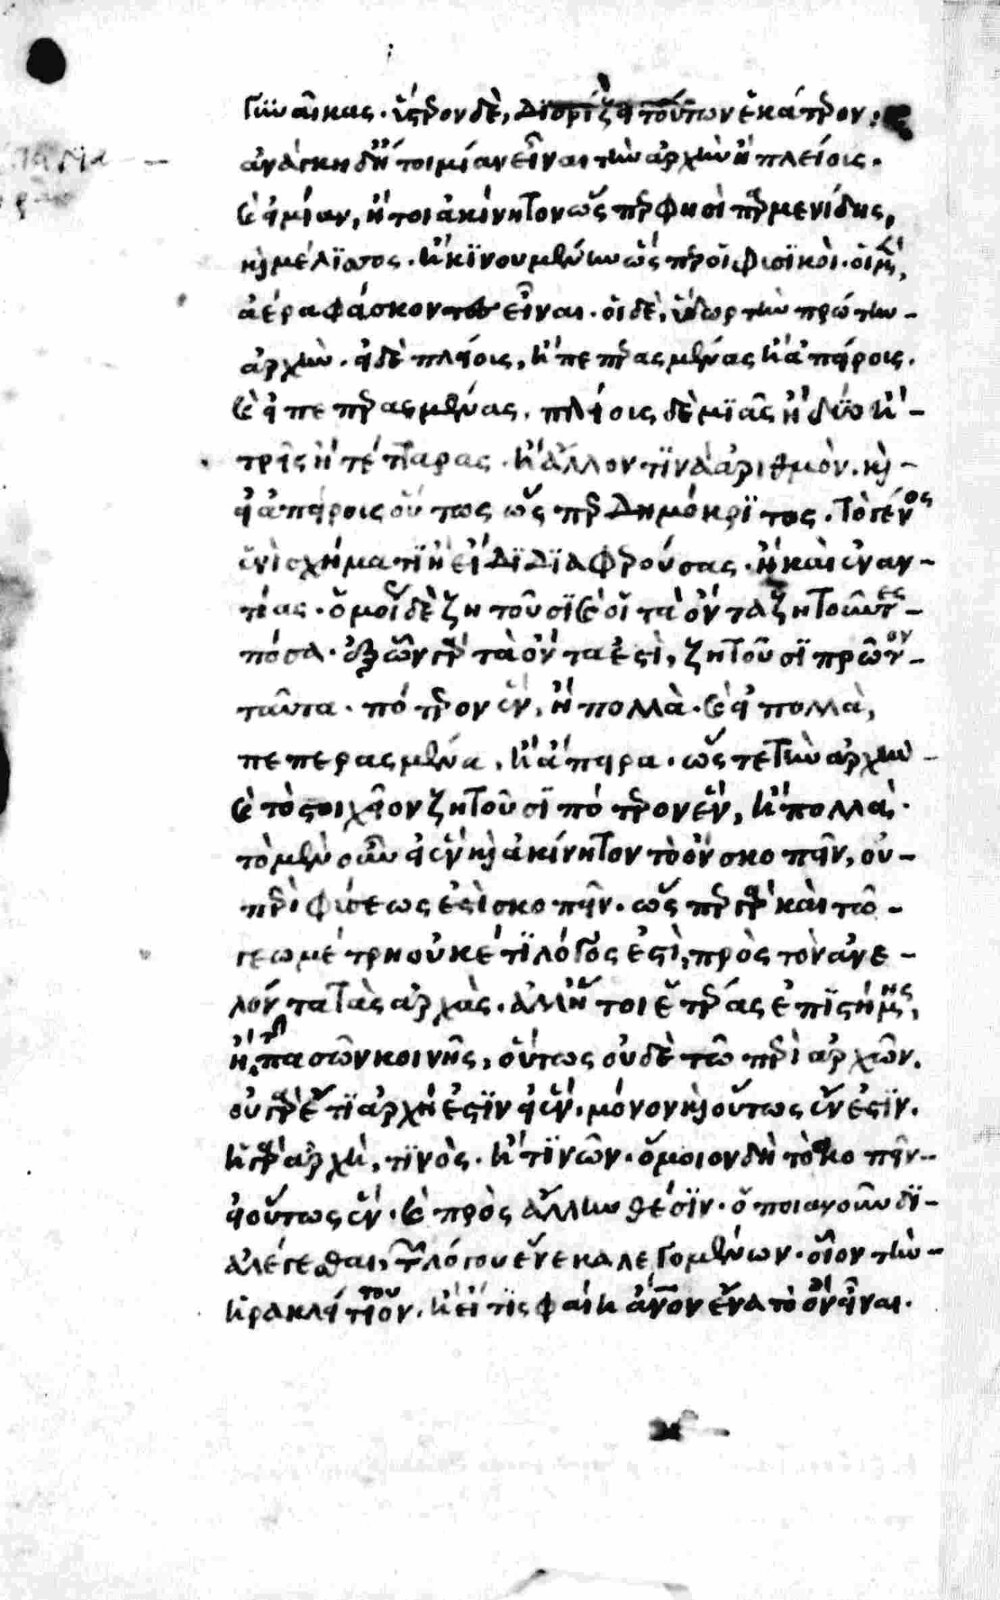 γυναῖκας· ὕστερον δὲ, διορίζει τούτων ἑκάτερον:
ἀνάγκη δ' ἤτοι μίαν εἶναι τὴν ἀρχὴν ἢ πλείοις·
καὶ εἰ μίαν, ἤτοι ἀκίνητον ὥς περ φησὶ παρμενίδης,
καὶ μέλισσος· ἢ κινουμένην ὥς περ οἱ φυσικοὶ· οἱ μὲν,
ἀέρα φάσκοντες εἶναι· οἱ δὲ, ὕδωρ τὴν πρώτην
ἀρχὴν· εἰ δὲ πλείοις, ἢ πεπερασμένας ἢ ἀπείροις.
καὶ εἰ πεπερασμένας, πλείοις δὲ μιᾶς ἢ δύο ἢ
τρεῖς ἢ τέτταρας· ἢ ἄλλον τινὰ ἀριθμὸν. καὶ
εἰ ἀπείροις οὕτως ὥς περ δημόκριτος. τὸ γένος
ἓν σχήματι ἢ εἴδει διαφερούσας· ἢ καὶ ἐναν-
τίας· ὁμοίως δὲ ζητοῦσι καὶ οἱ τὰ ὄντα ζητοῦντες
πόσα· ἐξ ὧν γὰρ τὰ ὄντα ἐστὶ, ζητοῦσι πρῶτον
ταῦτα· πότερον ἓν, ἢ πολλὰ· καὶ εἰ πολλὰ,
πεπερασμένα, ἢ ἄπειρα· ὥς τε τὴν ἀρχὴν
καὶ τὸ στοιχεῖον ζητοῦσι πότερον ἓν, ἢ πολλὰ·
τὸ μὲν οὖν εἰ ἓν καὶ ἀκίνητον τὸ ὂν σκοπεῖν, οὐ
περὶ φύσεως ἐστὶ σκοπεῖν· ὥς περ γὰρ καὶ τῶ
γεωμέτρη οὐκέτι λόγος ἐστὶ, πρὸς τὸν ἀνε-
λόντα τὰς ἀρχὰς· ἀλλ' ἤτοι ἑτέρας ἐπιστήμης,
ἢ πασῶν κοινῆς, οὕτως οὐδὲ τῶ περὶ ἀρχῶν.
οὐ γὰρ ἔτι ἀρχή ἐστιν εἰ ἓν· μόνον καὶ οὕτως ἕν ἐστιν.
ἡ γὰρ ἀρχὴ, τινὸς· ἢ τινῶν· ὅμοιον δὴ τὸ σκοπεῖν
εἰ οὕτως ἓν· καὶ πρὸς ἄλλην θέσιν· ὁποιανοῦν δι-
αλέγεσθαι, τῶν λόγου ἕνεκα λεγομένων· οἷον τὴν
ἡρακλείτειον. ἢ εἴ τις φαίη ἄνον ἕνα τὸ ὂν εἶναι.